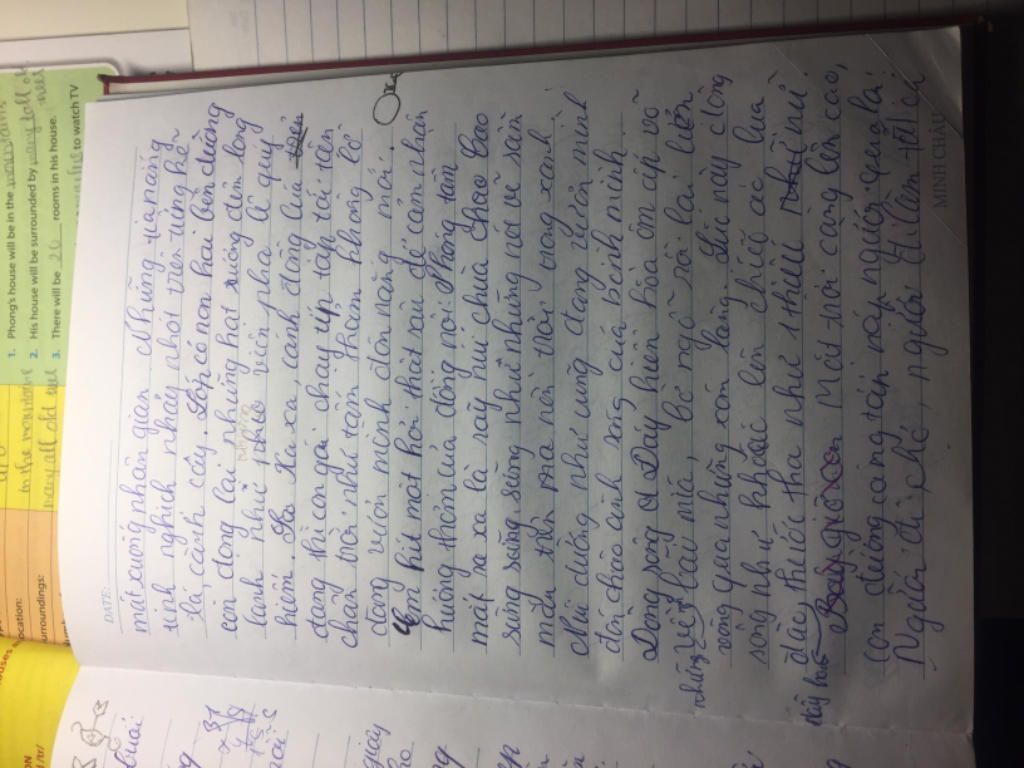 DATE:
mắt xuống nhân gian. Những tia nắng
tinh nghịch nhảy nhót trên từng kẽ
lá, cành cây. Lớp cỏ non hai bên đường
còn đọng lại những hạt sương đêm long
lanh như những viên pha lê quý
hiếm. Xa xa, cánh đồng lúa
đang thì con gái chạy tít tắp tới tận
chân trời như tấm thảm khổng lồ
đang vươn mình đón nắng mới.
Em hít một hơi thật sâu để cảm nhận
hương thơm của đồng nội. Phóng tầm
mắt ra xa là dãy núi chứa chao cao
sừng sững như những nét vẽ sẫm
màu trên nền trời trong xanh
Núi dường như cũng đang vươn mình
đón chào ánh sáng của bình minh.
Dòng sông ở Đáy hiền hòa ôm ấp vỗ
những bãi mía, bờ ngô rồi lại lượn
vòng qua những xóm làng. Lúc này dòng
sông như khoác lên chiếc áo lụa
đào thướt tha như 1 thiếu nữ
Mặt trời càng lên cao,
con đường càng tấp nập người qua lại
Người đi chợ, người đi làm tất cả
MINH CHÂU
1. Phong's house will be in the mountains
2. His house will be surrounded by many tall
3. There will be 20 rooms in his house.
to watch TV
in the mountains
many tall old trees
location:
surroundings: